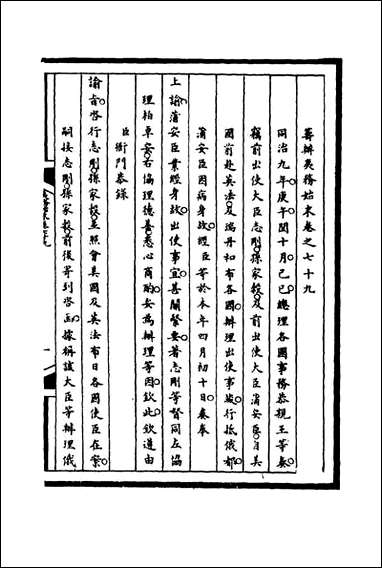 籌辦夷務始末卷之七十九
同治九年庚午閏十月己巳總理各國事務恭親王等奏
竊前出使大臣志剛孫家穀及前出使大臣蒲安臣自美
國前赴英法及瑞丹和布各國辦理出使事務行抵俄都
蒲安臣因病身故經臣等於本年四月初十日奏奉
上諭蒲安臣業經身故出使事宜善關緊要著志剛等督同左協
理柏卓安右協理德善悉心商酌妥為辦理等因欽此欽遵由
臣衙門恭錄
諭旨咨行志剛孫家穀並照會美國及英法布日各國使臣在案
嗣接志剛孫家穀前後寄到咨函據稱該大臣等辦理俄